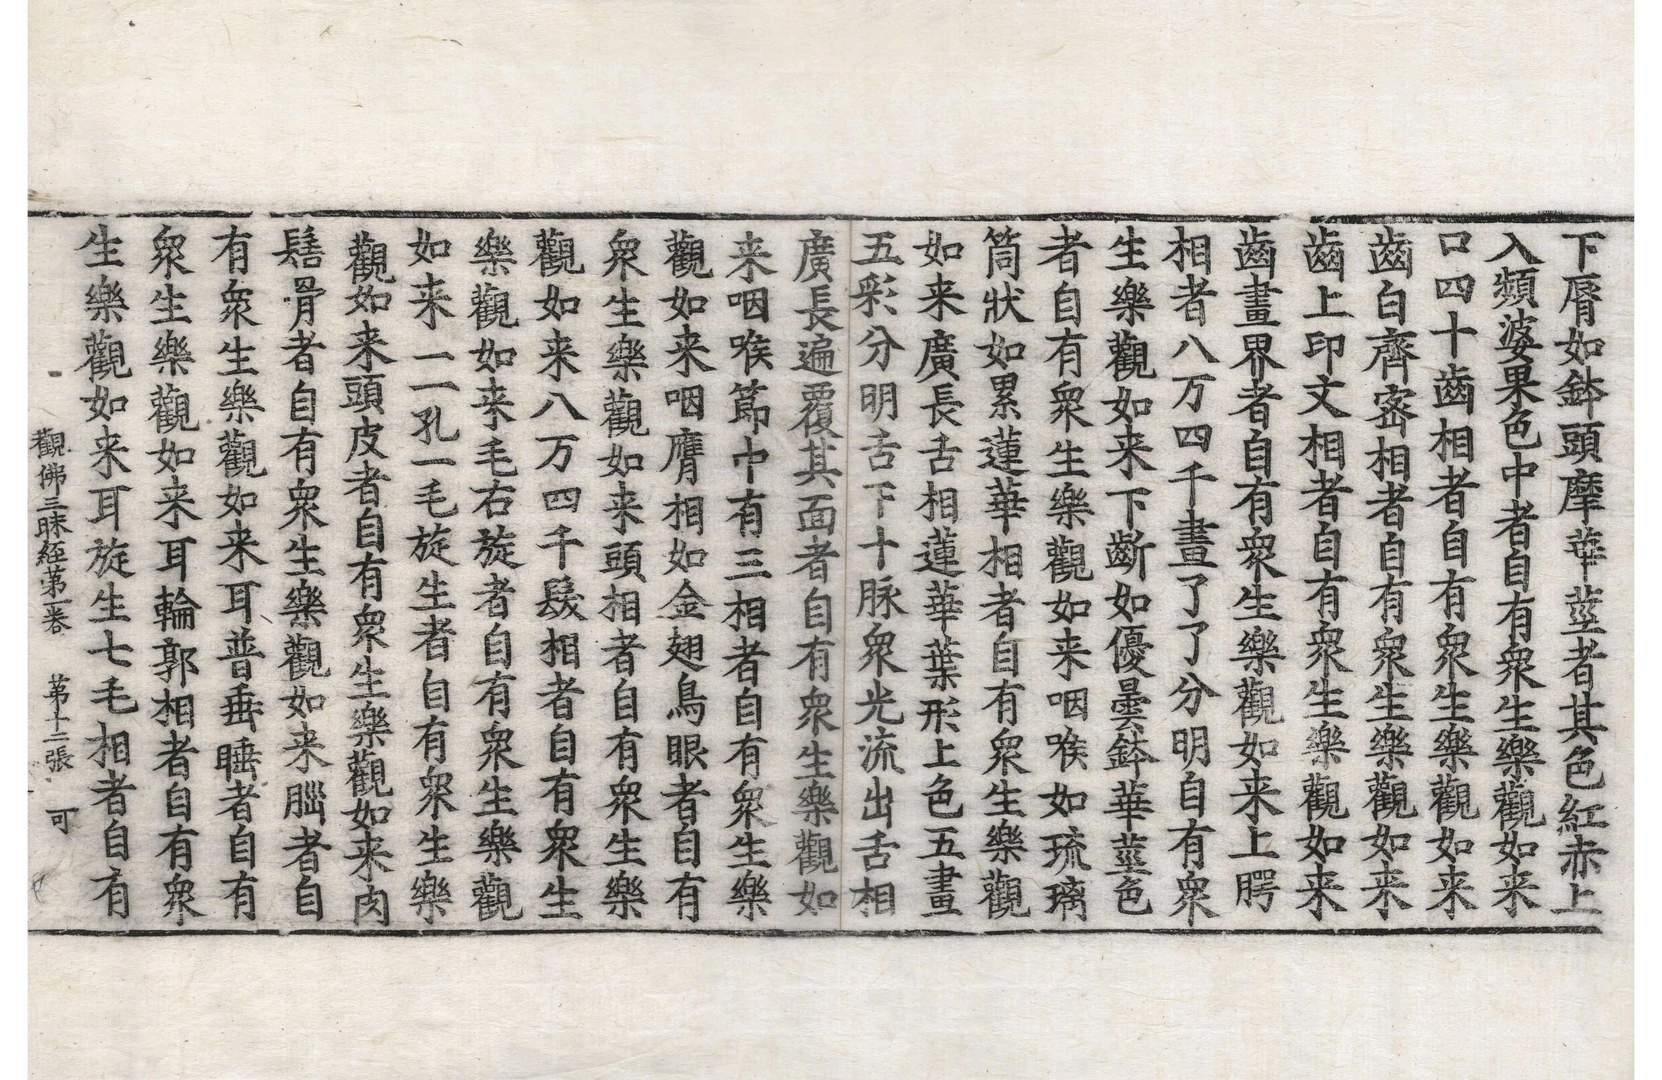 下脣如鉢頭摩華莖者其色紅赤上
入頻婆果色中者自有衆生樂觀如来
口四十齒相者自有衆生樂觀如来
齒白齊密相者自有衆生樂觀如来
齒上印文相者自有衆生樂觀如来
齒畫界者自有衆生樂觀如来上腭
相者八万四千畫了了分明自有衆
生樂觀如来下齗如優曇鉢華莖色
者自有衆生樂觀如来咽喉如琉璃
筒狀如累蓮華相者自有衆生樂觀
如来廣長舌相蓮華葉形上色五畫
五彩分明舌下十脉衆光流出舌相
廣長遍覆其面者自有衆生樂觀如
来咽喉節中有三相者自有衆生樂
觀如来咽膺相如金翅鳥眼者自有
衆生樂觀如来頭相者自有衆生樂
觀如来八万四千髮相者自有衆生
樂觀如来毛右旋者自有衆生樂觀
如来一一孔一毛旋生者自有衆生樂
觀如来頭皮者自有衆生樂觀如来肉
髻骨者自有衆生樂觀如来腦者自
有衆生樂觀如来耳普垂睡者自有
衆生樂觀如来耳輪郭相者自有衆
生樂觀如来耳旋生七毛相者自有
觀佛三昧經第一卷　第十二張　可